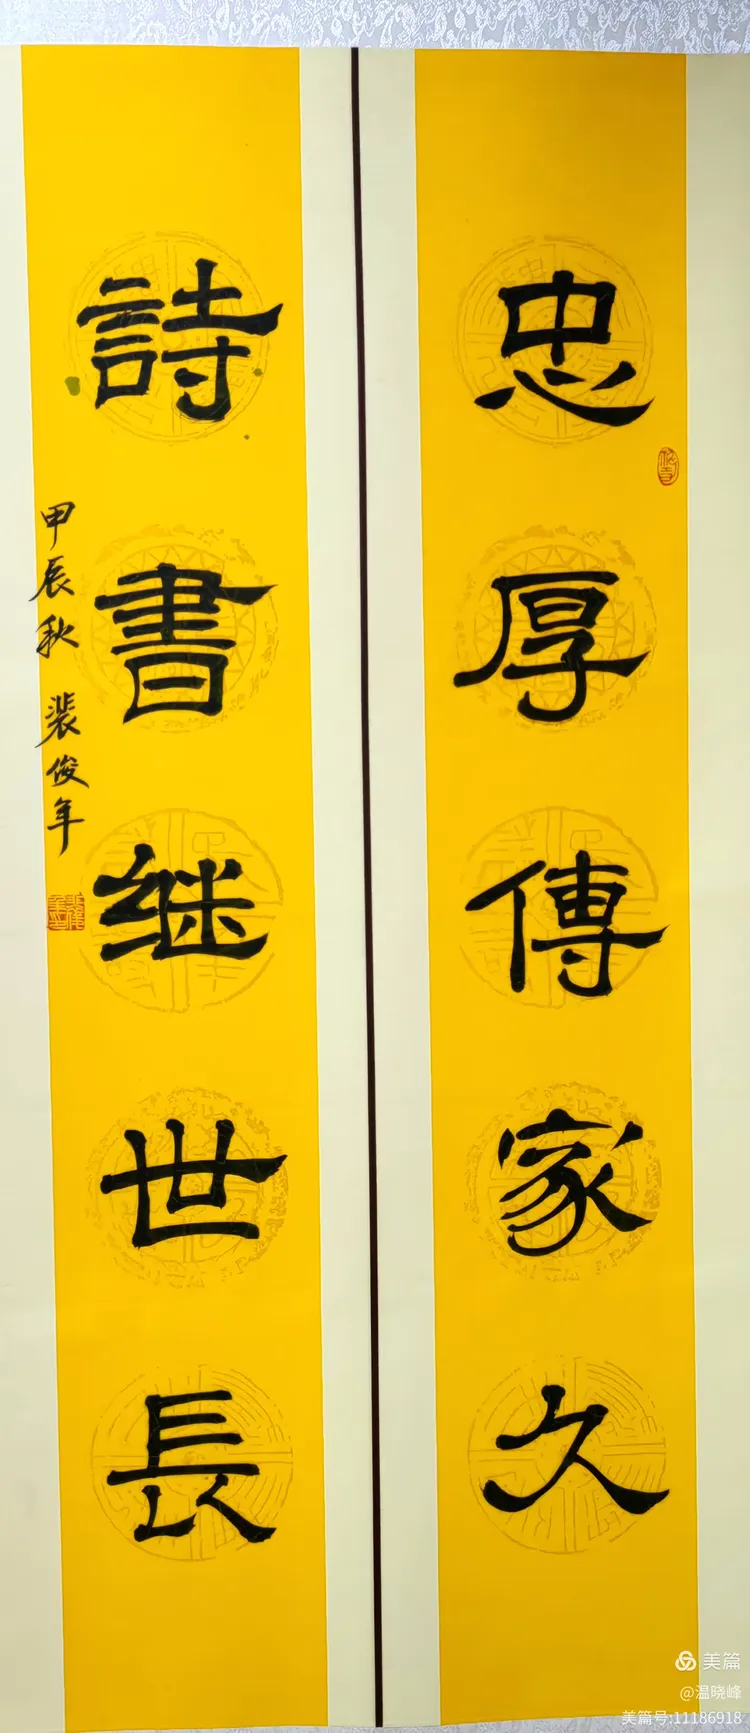 忠厚傳家久
詩書继世長
甲辰秋 裴俊年
美篇
@温晓峰
美篇号:11186918